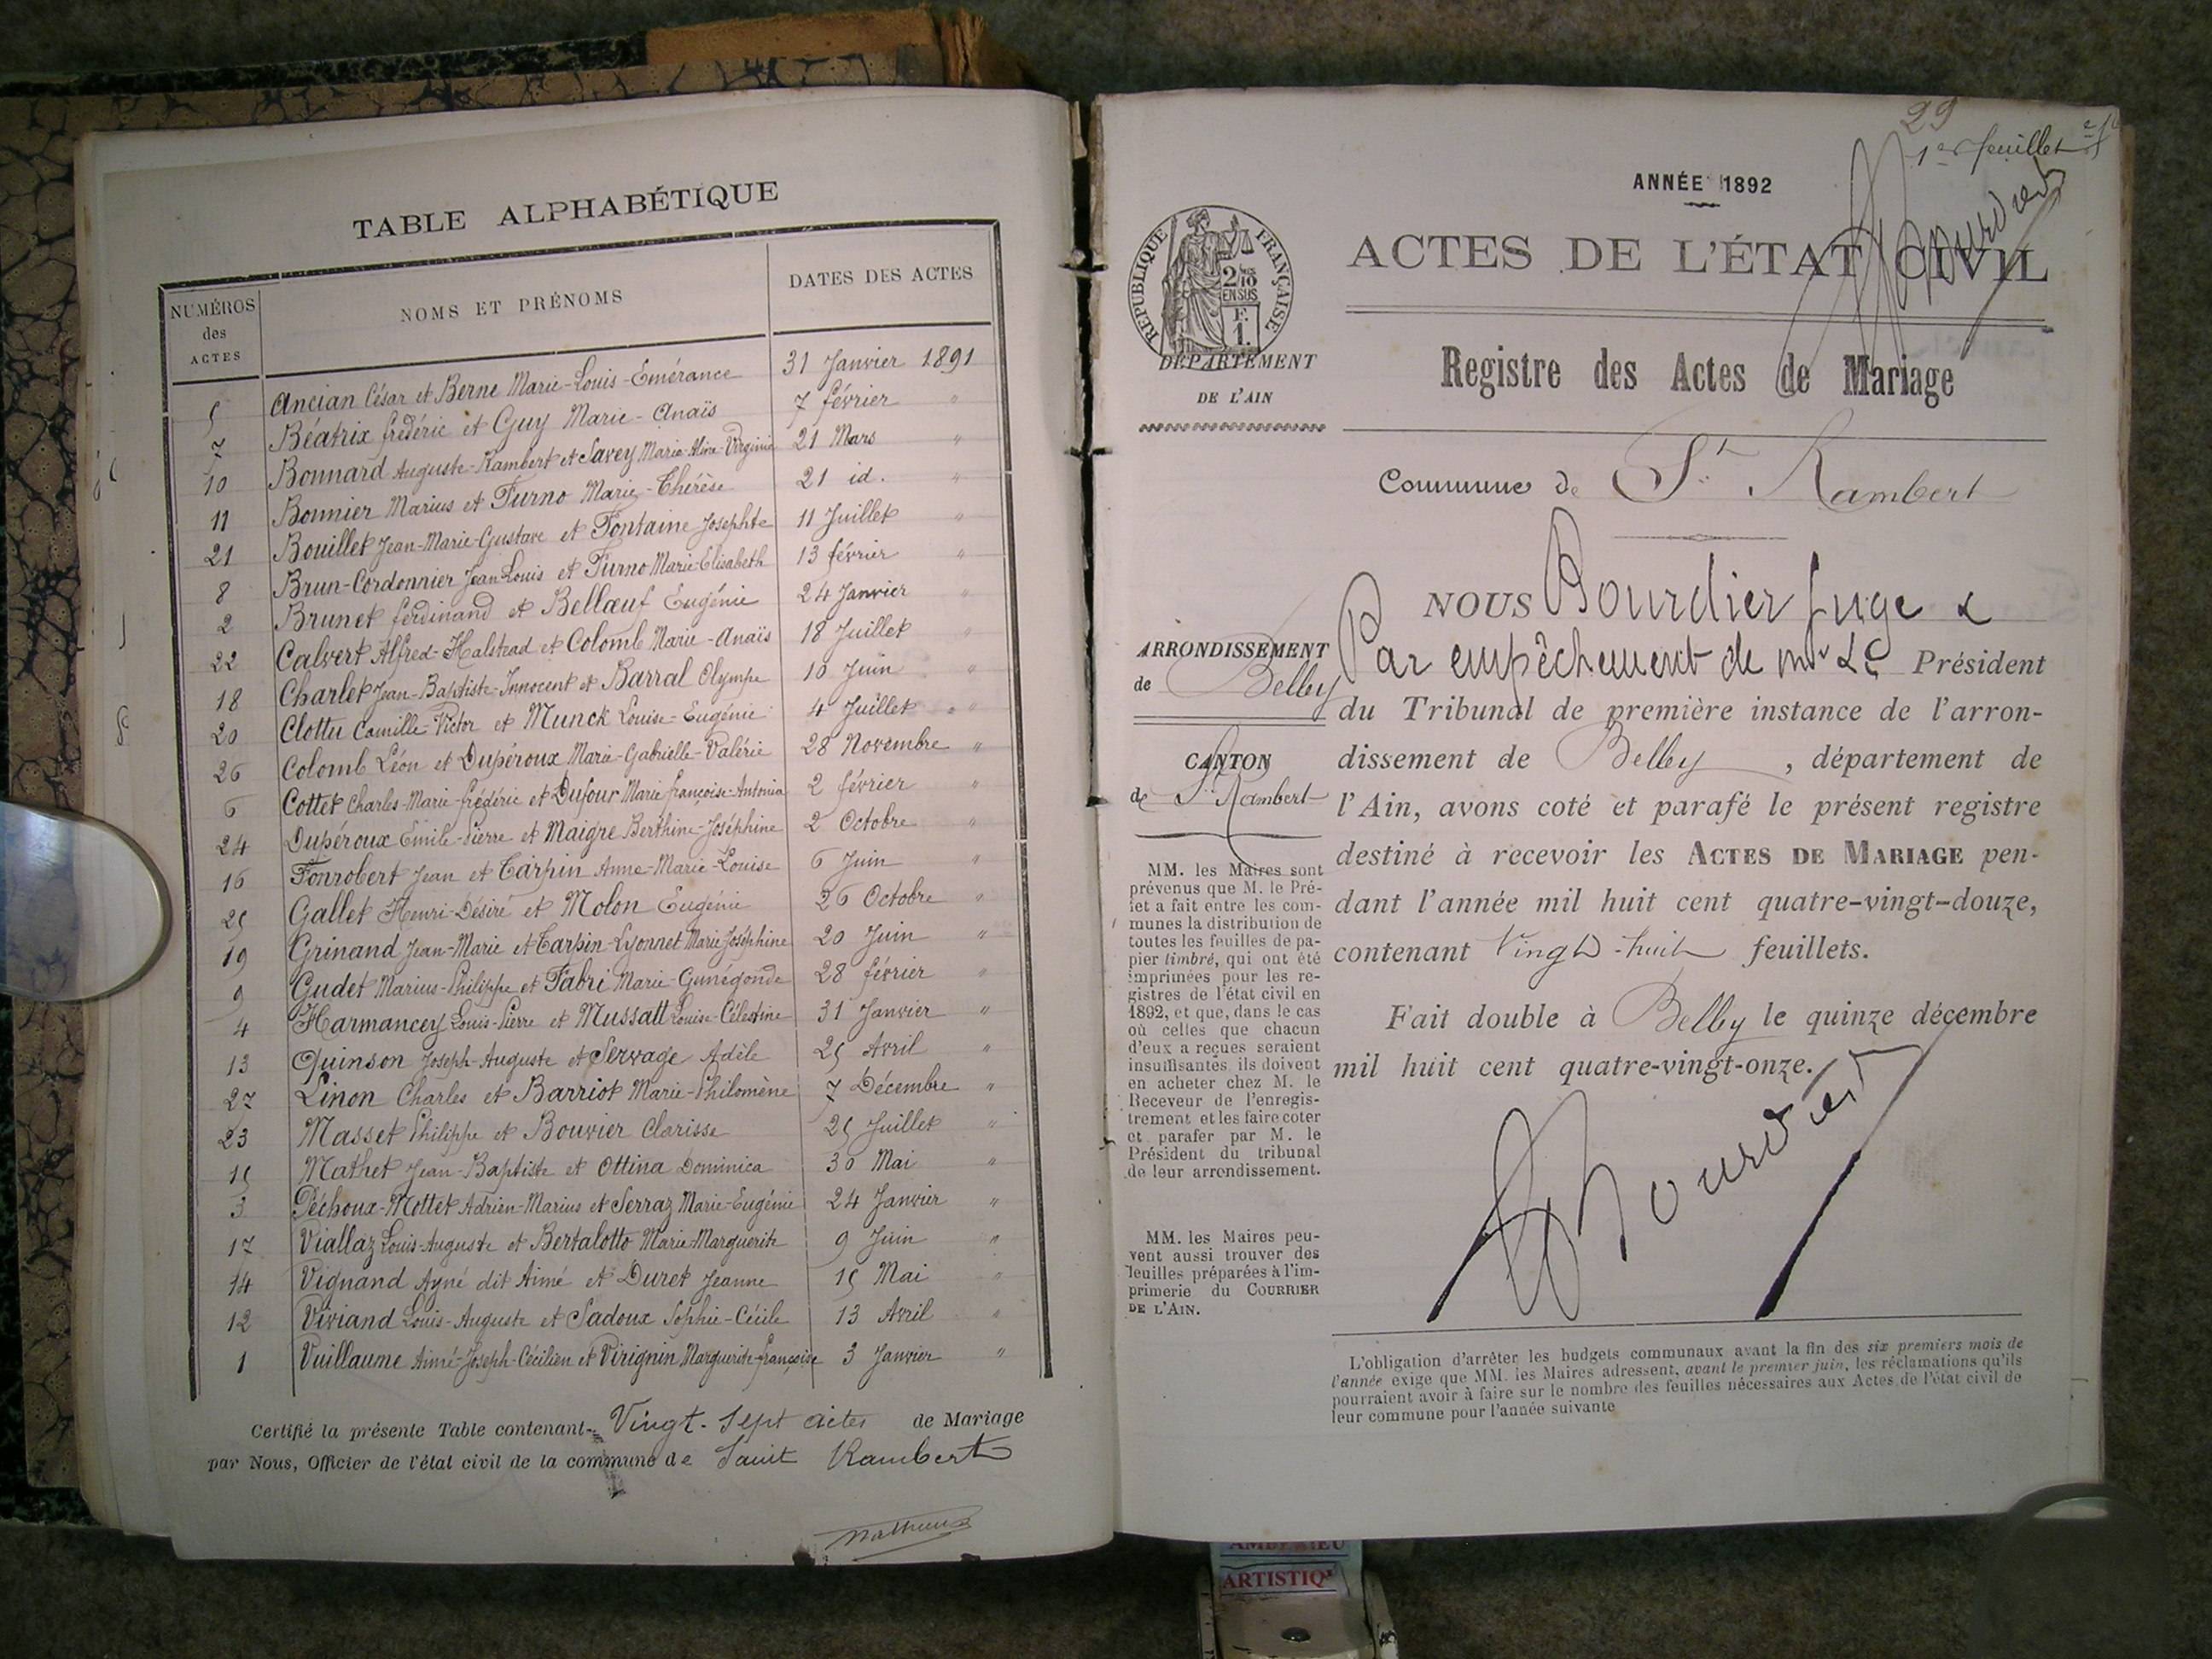 TABLE ALPHABÉTIQUE
NUMÉROS des ACTES NOMS ET PRÉNOMS DATES DES ACTES
5 Ancian César et Berne Marie-Louis-Emérance 31 Janvier 1891
7 Béatrix frédéric et Guy Marie-Anaïs 7 février "
10 Bonnard Auguste-Rambert et Savey Marie-Aline-Virginie 21 Mars "
11 Bonnier Marius et Furno Marie-Thérèse 21 id. "
21 Bouillet Jean-Marie-Gustave et Fontaine Josephte 11 Juillet "
8 Brun-Cordonnier Jean Louis et Furno Marie-Elisabeth 13 février "
2 Brunet ferdinand et Bellœuf Eugénie 24 Janvier "
22 Calvert Alfred-Halstead et Colomb Marie-Anaïs 18 Juillet "
18 Charlet Jean-Baptiste-Innocent et Barral Olympe 10 Juin "
20 Clottu Camille-Victor et Munck Louise-Eugénie 4 Juillet "
26 Colomb Léon et Dupéroux Marie-Gabrielle-Valérie 28 Novembre "
6 Cottet Charles-Marie-frédéric et Dufour Marie françoise-Antonia 2 février "
24 Dupéroux Emile-Pierre et Maigre Berthine-Joséphine 2 Octobre "
16 Fonrobert Jean et Carpin Anne-Marie-Louise 6 Juin "
25 Gallet Henri-Désiré et Molon Eugénie 26 Octobre "
19 Grinand Jean-Marie et Carpin-Lyonnet Marie Joséphine 20 Juin "
9 Gudet Marius-Philippe et Fabri Marie-Gunégonde 28 février "
4 Harmancey Louis-Pierre et Mussatt Louise-Célestine 31 Janvier "
13 Quinson Joseph-Auguste et Servage Adèle 25 Avril "
27 Linon Charles et Barriot Marie-Philomène 7 Décembre "
23 Masset Philippe et Bouvier Clarisse 25 Juillet "
15 Mathet Jean-Baptiste et Ottina Dominica 30 Mai "
3 Péchoux-Mottet Adrien-Marius et Serraz Marie-Eugénie 24 Janvier "
17 Viallaz Louis-Auguste et Bertalotto Marie-Marguerite 9 Juin "
14 Vignand Ayné dit Aimé et Duret Jeanne 15 Mai "
12 Viviand Louis-Auguste et Sadoux Sophie-Cécile 13 Avril "
1 Vuillaume Aimé-Joseph-Cécilien et Virignin Marguerite-françoise 3 Janvier "
Certifié la présente Table contenant Vingt-Sept actes de Mariage
par Nous, Officier de l'état civil de la commune de Saint Rambert
29
1er feuillet
ANNÉE 1892
RÉPUBLIQUE FRANÇAISE
2/10
EN SUS
F.
1.
ACTES DE L'ÉTAT CIVIL
DÉPARTEMENT
DE L'AIN
Registre des Actes de Mariage
Commune de St Rambert
ARRONDISSEMENT
de Belley
CANTON
de St Rambert
MM. les Maires sont
prévenus que M. le Pré-
fet a fait entre les com-
munes la distribution de
toutes les feuilles de pa-
pier timbré, qui ont été
imprimées pour les re-
gistres de l'état civil en
1892, et que, dans le cas
où celles que chacun
d'eux a reçues seraient
insuffisantes, ils doivent
en acheter chez M. le
Receveur de l'enregis-
trement et les faire coter
et parafer par M. le
Président du tribunal
de leur arrondissement.
MM. les Maires peu-
vent aussi trouver des
feuilles préparées à l'im-
primerie du COURRIER
DE L'AIN.
NOUS Bourdier Juge
Par empêchement de Mr Le Président
du Tribunal de première instance de l'arron-
dissement de Belley, département de
l'Ain, avons coté et parafé le présent registre
destiné à recevoir les ACTES DE MARIAGE pen-
dant l'année mil huit cent quatre-vingt-douze,
contenant Vingt-huit feuillets.
Fait double à Belley le quinze décembre
mil huit cent quatre-vingt-onze.
L'obligation d'arrêter les budgets communaux avant la fin des six premiers mois de
l'année exige que MM. les Maires adressent, avant le premier juin, les réclamations qu'ils
pourraient avoir à faire sur le nombre des feuilles nécessaires aux Actes de l'état civil de
leur commune pour l'année suivante
ARTISTIQ